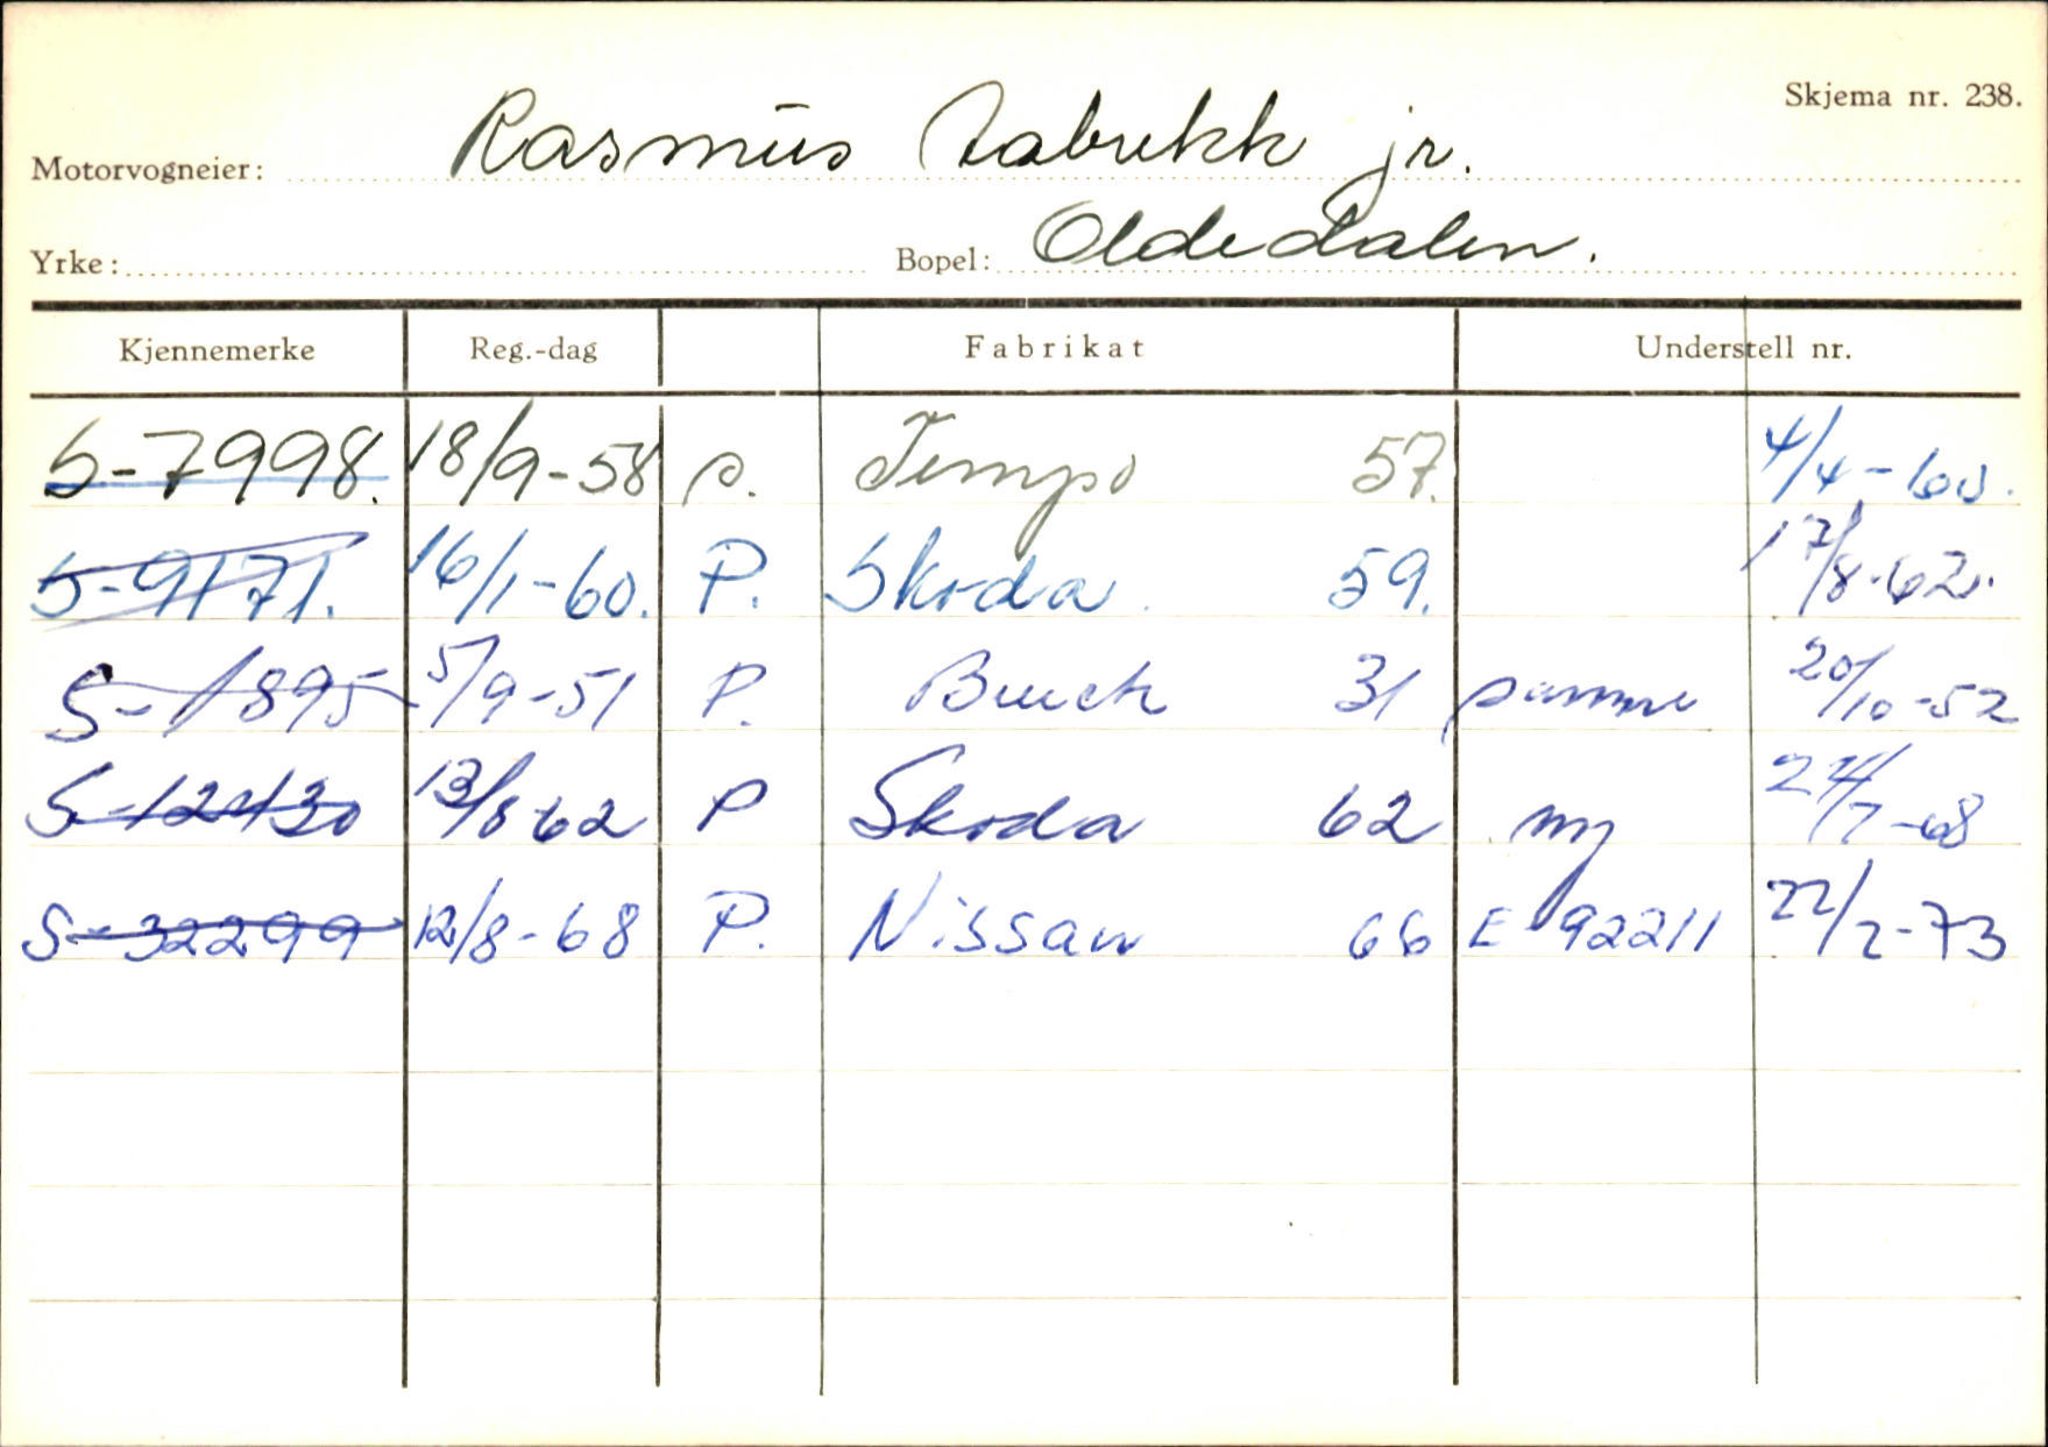 Skjema nr. 238.
Motorvogneier: Rasmus Aabrekk jr.
Yrke: Bopel: Oldedalen.
Kjennemerke Reg.-dag Fabrikat Understell nr.
S-7998. 18/9-58 p. Tempo 57. 4/4-60.
S-9171. 16/1-60. P. Skoda. 59. 17/8-62.
S-1895 5/9-51 P. Buick 31 samme 20/10-52
S-12430 13/8 62 P Skoda 62 ny 24/7-68
S-32299 12/8-68 P. Nissan 66 E 92211 22/2-73